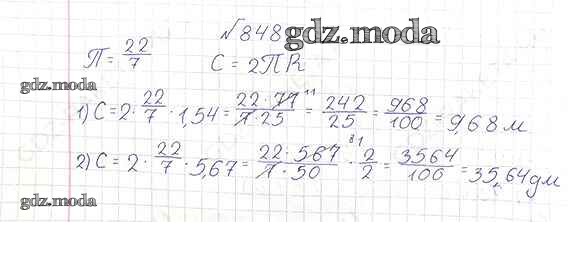 №848
gdz.moda
П = 22/7   C = 2ПR
gdz.moda
1) C = 2 · 22/7 · 1,54 = 22 · 77 11/7 · 25 = 242/25 = 968/100 = 9,68 м
2) C = 2 · 22/7 · 5,67 = 22 · 567 81/7 · 50 · 2/2 = 3564/100 = 35,64 дм
gdz.moda
gdz.moda